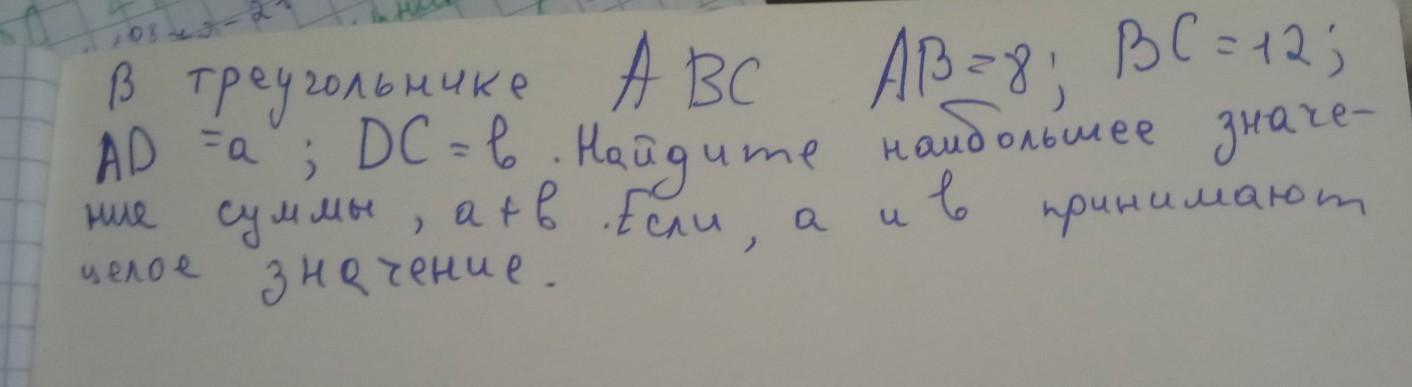 В треугольнике ABC AB=8; BC=12;
AD=a; DC=b. Найдите наибольшее значе-
ние суммы, a+b. Если, a и b принимают
целое значение.